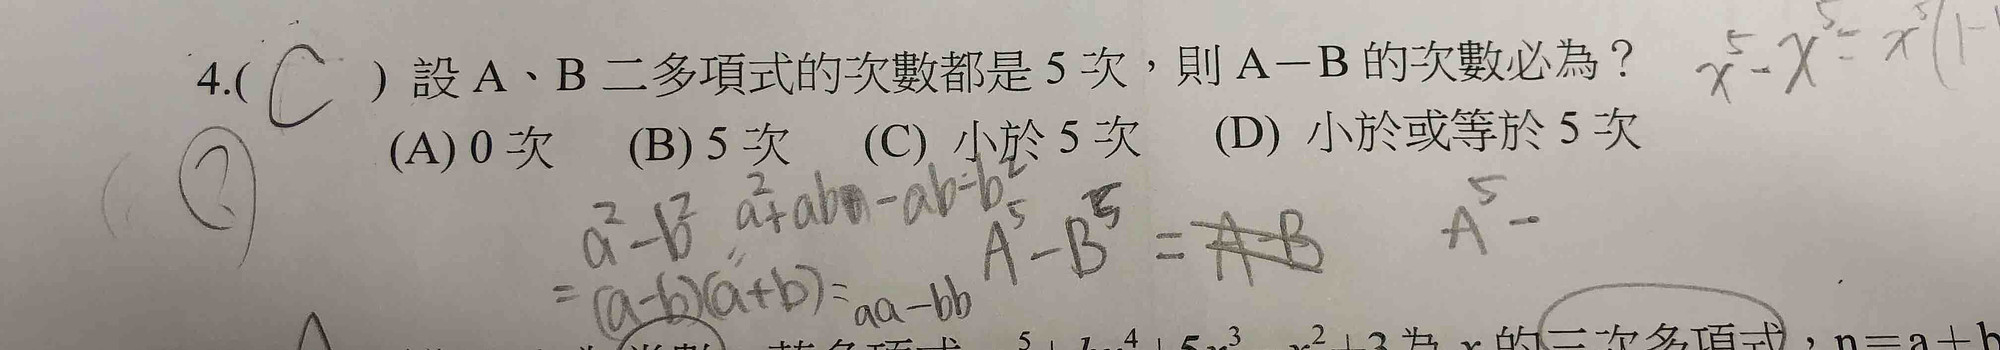 4.( C ) 設 A、B 二多項式的次數都是 5 次，則 A－B 的次數必為？
x⁵-x⁵=x⁵(1-1
(A) 0 次 (B) 5 次 (C) 小於 5 次 (D) 小於或等於 5 次
(?)
a²-b² a²+ab-ab-b²
=(a-b)(a+b)=aa-bb
A⁵-B⁵=A-B
A⁵-
x²+3 為 x 的三次多項式，n＝a＋b